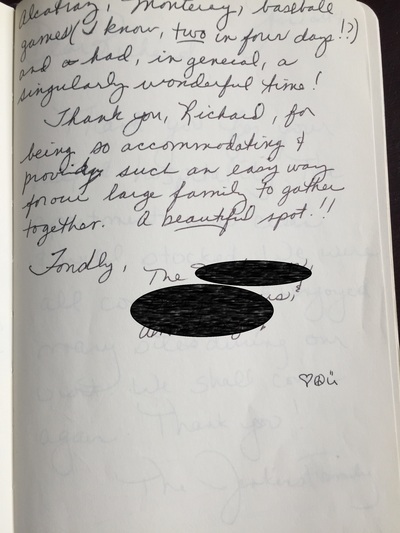 Alcatraz, Monterey, baseball
games (I know, two in four days!?)
and had, in general, a
singularly wonderful time!
Thank you, Richard, for
being so accommodating &
providing such an easy way
for our large family to gather
together. A beautiful spot!!
Fondly, The